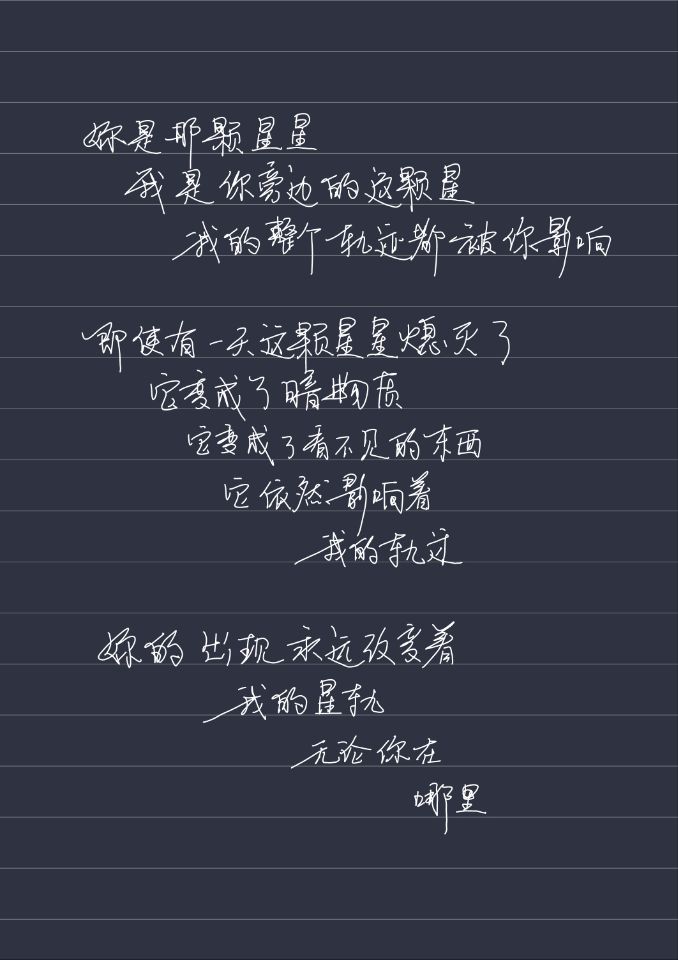 妳是那颗星星
我是你旁边的这颗星
我的整个轨迹都被你影响
即使有一天这颗星星熄灭了
它变成了暗物质
它变成了看不见的东西
它依然影响着
我的轨迹
妳的出现永远改变着
我的星轨
无论你在
哪里